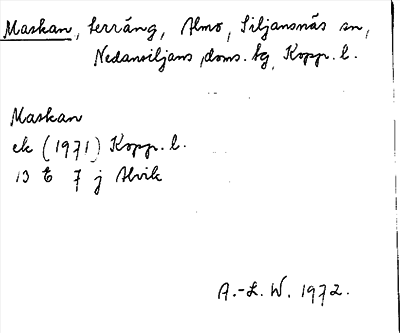 Maskan, terräng, Almo, Siljansnäs sn,
Nedansiljans doms. tg, Kopp. l.
Maskan
ek (1971) Kopp. l.
13 E 7 j Alvik
A.-L. W. 1972.